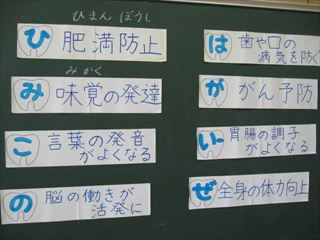 ひまんぼうし
ひ 肥満防止
みかく
み 味覚の発達
こ 言葉の発音
がよくなる
の 脳の働きが
活発に
は 歯や口の
病気を防ぐ
が がん予防
い 胃腸の調子
がよくなる
ぜ 全身の体力向上